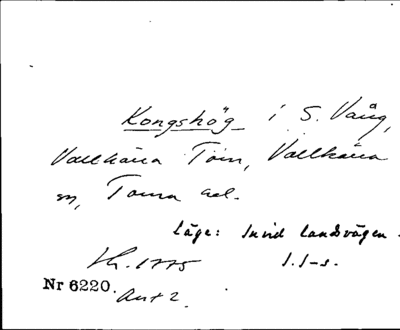 Kongshög i S. Vång,
Vallkärra Torn, Vallkärra
sn, Torna hd.
Läge: Invid landsvägen.
1775 I. I-s.
Nr 6220. Ant 2.